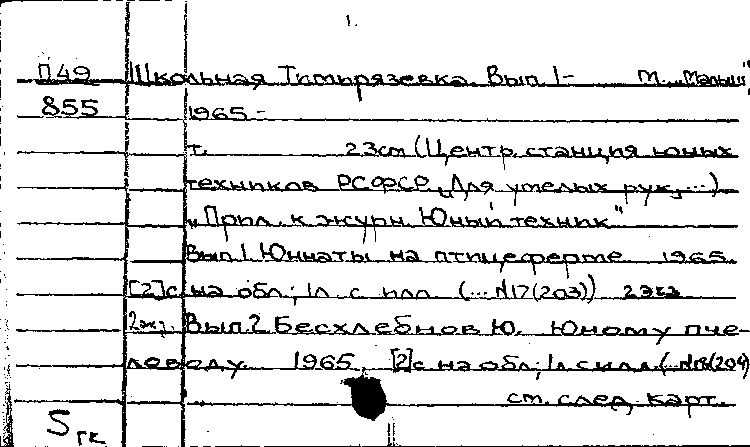 1.
П49 Школьная Тимирязевка. Вып. 1- М. „Малыш",
855 1965 -
т. 23см (Центр. станция юных
техников РСФСР, „Для умелых рук,...)
„Прил. к журн. Юный техник"
Вып. 1 Юннаты на птицеферме 1965.
[2]с на обл.; 1л. с илл. (...N17(203))
2экз. Вып. 2 Бесхлебнов Ю. Юному пче-
ловоду. 1965, [2]с на обл.; 1л с илл. (...N18(204)
см. след. карт.
S гк